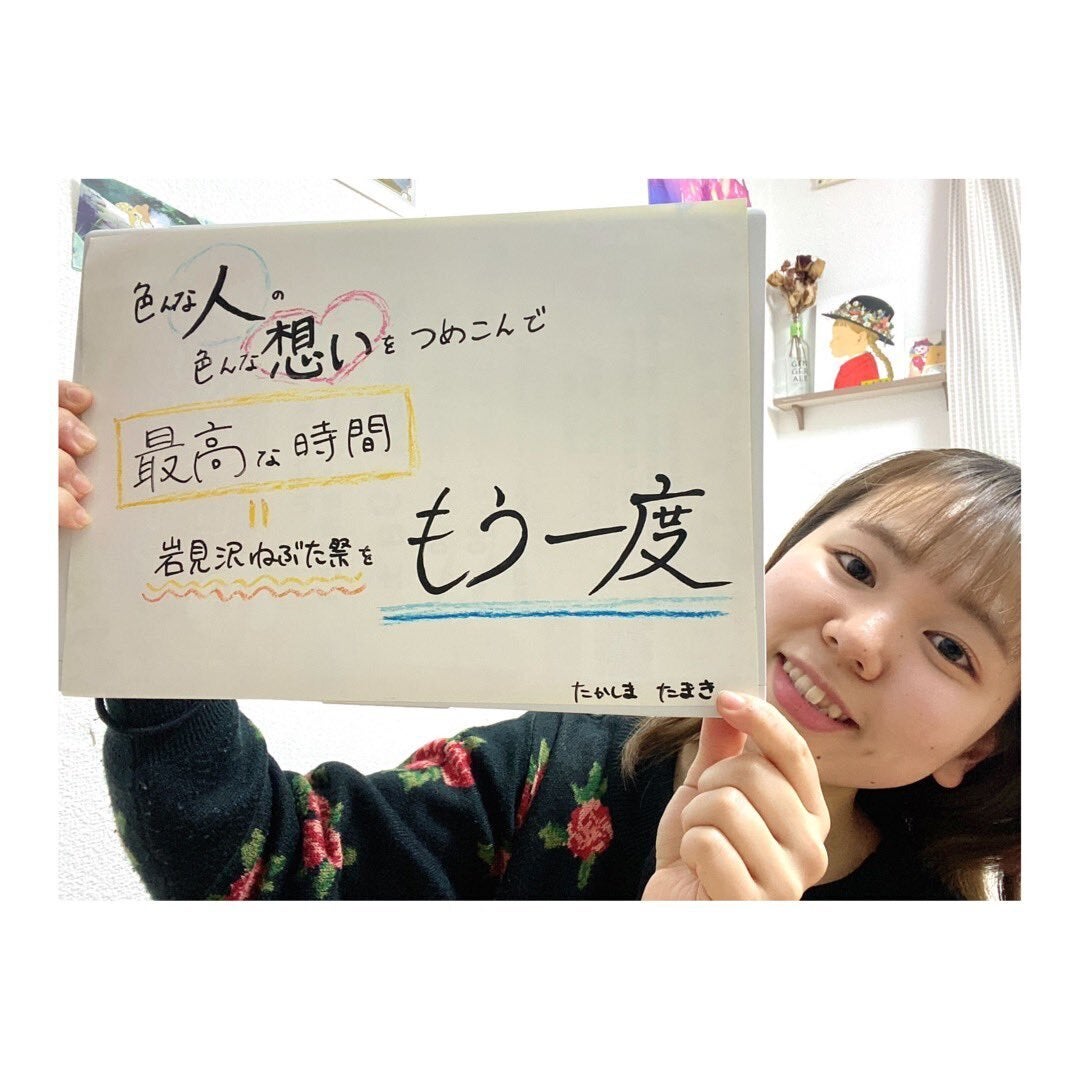 色んな人の
色んな想いをつめこんで
最高な時間
=
岩見沢ねぶた祭を
もう一度
たかしま たまき
GIN
GER
ALE